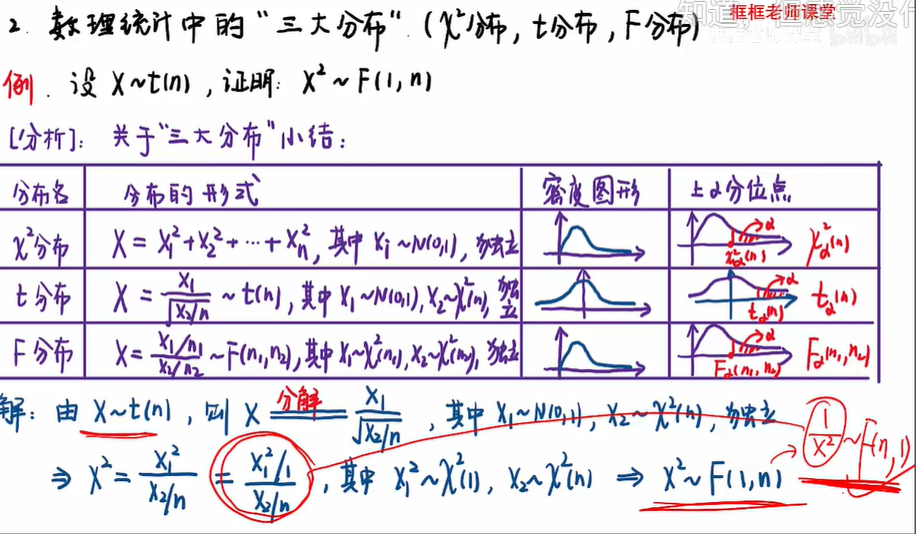 知道，但感觉没什
框框老师课堂
bilibili
2. 数理统计中的"三大分布".(χ²分布, t分布, F分布)
例. 设 X~t(n), 证明: X²~F(1,n)
[分析]: 关于"三大分布"小结:
分布名 分布的形式 密度图形 上α分位点
χ²分布 X = X₁²+X₂²+…+Xn², 其中 Xi~N(0,1), 独立 α χ²α(n) χ²α(n)
t分布 X = X₁/√(X₂/n) ~t(n), 其中 X₁~N(0,1), X₂~χ²(n), 独立 α tα(n) tα(n)
F分布 X = (X₁/n₁)/(X₂/n₂) ~F(n₁,n₂), 其中 X₁~χ²(n₁), X₂~χ²(n₂), 独立 α Fα(n₁,n₂) Fα(n₁,n₂)
解: 由 X~t(n), 则 X =分解= X₁/√(X₂/n), 其中 X₁~N(0,1), X₂~χ²(n), 独立
⇒ X² = X₁²/(X₂/n) = (X₁²/1)/(X₂/n), 其中 X₁²~χ²(1), X₂~χ²(n) ⇒ X²~F(1,n) 1/X² ~F(n,1)